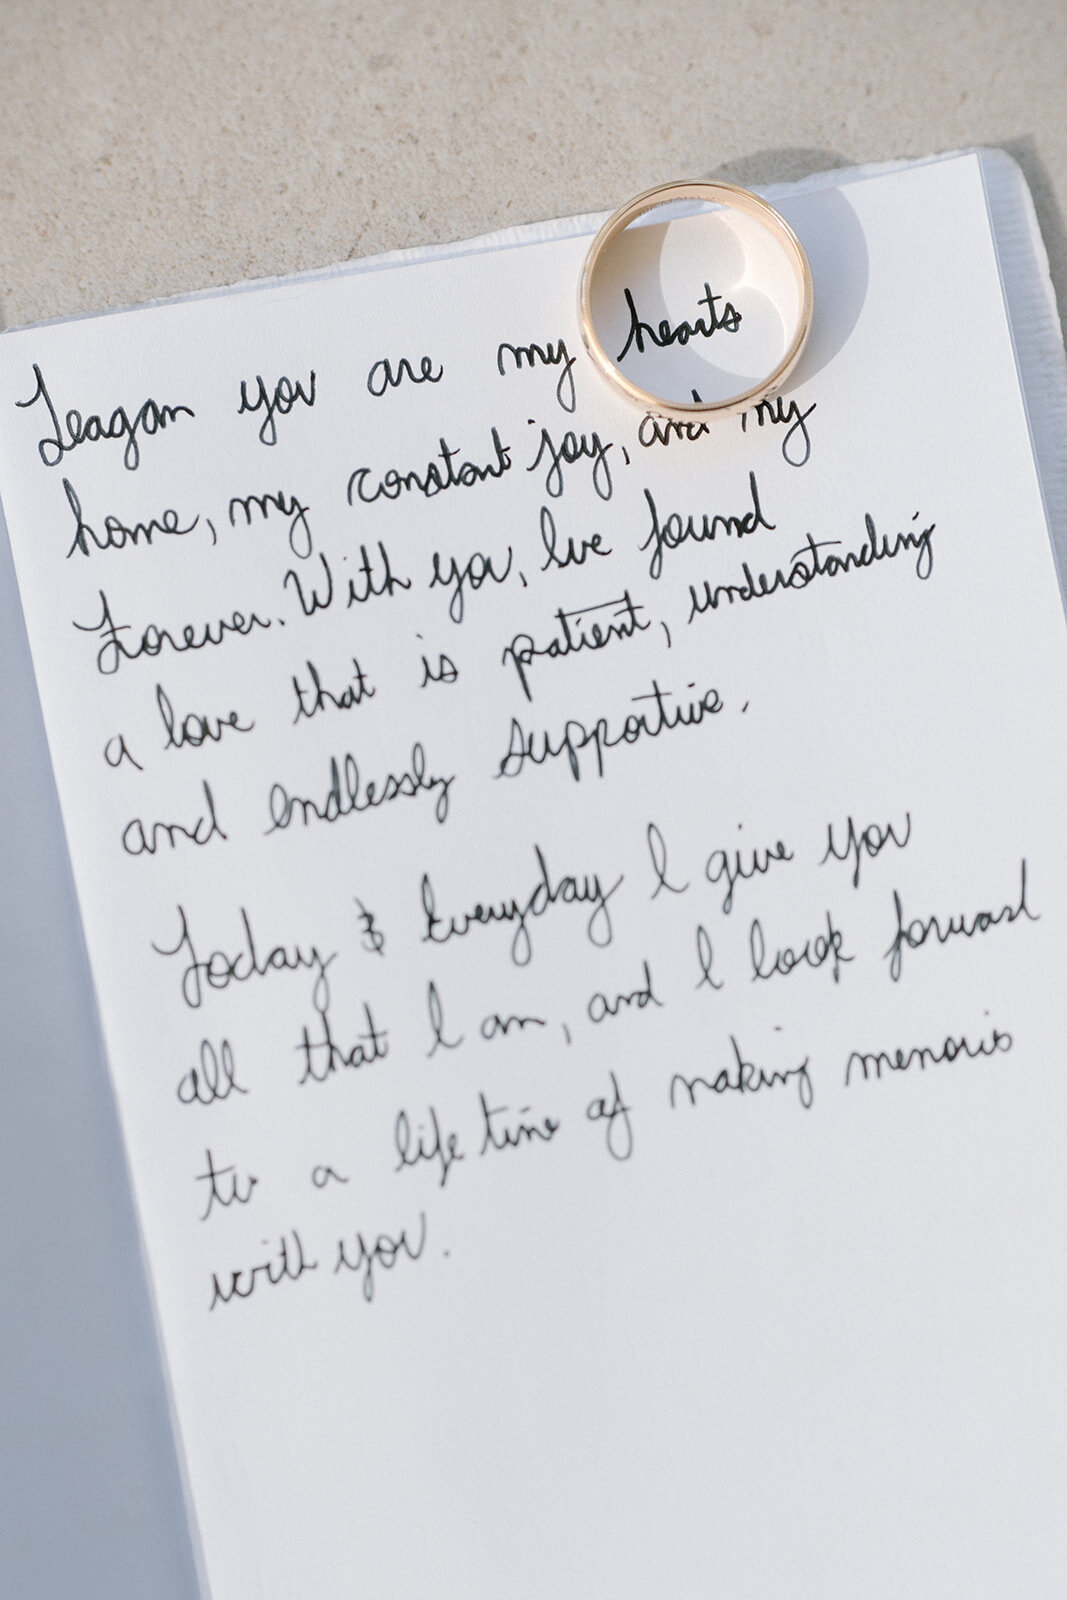 Teagan you are my hearts
home, my constant joy, and my
Forever. With you, Ive found
a love that is patient, understanding
and endlessly supportive.
Today & Everyday I give you
all that I am, and I look forward
to a life time of making memories
with you.